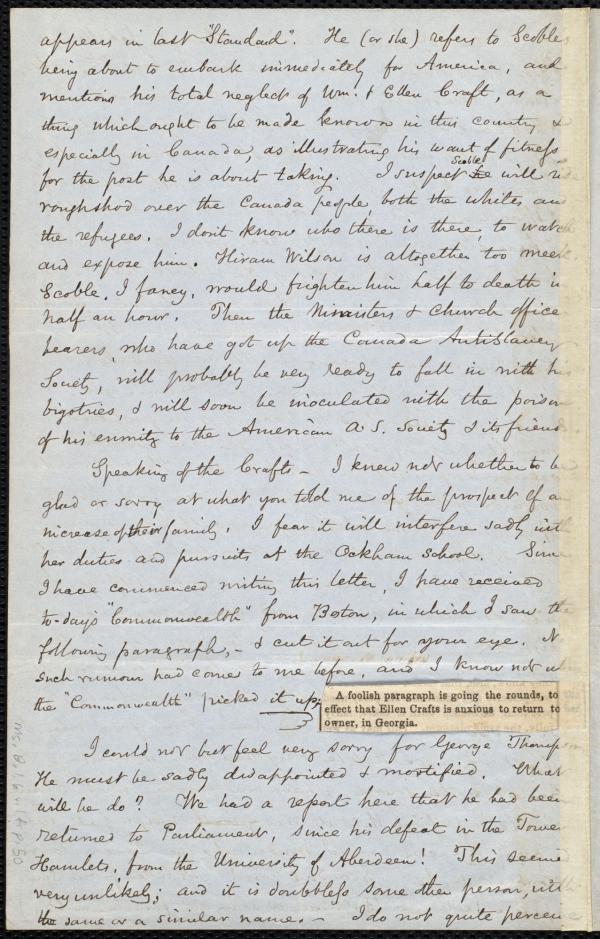 appears in last "Standard". He (or she) refers to Scoble
being about to embark immediately for America, and
mentions his total neglect of Wm. & Ellen Craft, as a
thing which ought to be made known in this country &
especially in Canada, as illustrating his want of fitness
for the post he is about taking. I suspect Scoble will ride
roughshod over the Canada people, both the whites and
the refugees. I don't know who there is there, to watch
and expose him. Hiram Wilson is altogether too meek.
Scoble, I fancy, would frighten him half to death in
half an hour. Then the Ministers & Church office
bearers, who have got up the Canada Antislavery
Society, will probably be very ready to fall in with his
bigotries, & will soon be inoculated with the poison
of his enmity to the American A. S. Society & its friends.
Speaking of the Crafts – I know not whether to be
glad or sorry at what you told me of the prospect of an
increase of their family. I fear it will interfere sadly with
her duties and pursuits at the Ockham School. Since
I have commenced writing this letter, I have received
to-day's "Commonwealth" from Boston, in which I saw the
following paragraph, – & cut it out for your eye. No
such rumour had come to me before, and I know not
the "Commonwealth" picked it up.
A foolish paragraph is going the rounds, to
effect that Ellen Crafts is anxious to return to
owner, in Georgia.
I could not but feel very sorry for George Thompson
He must be sadly disappointed & mortified. What
will he do? We had a report here that he had been
returned to Parliament, since his defeat in the Tower
Hamlets, from the University of Aberdeen! This seemed
very unlikely; and it is doubtless some other person, with
the same or a similar name. – I do not quite perceive